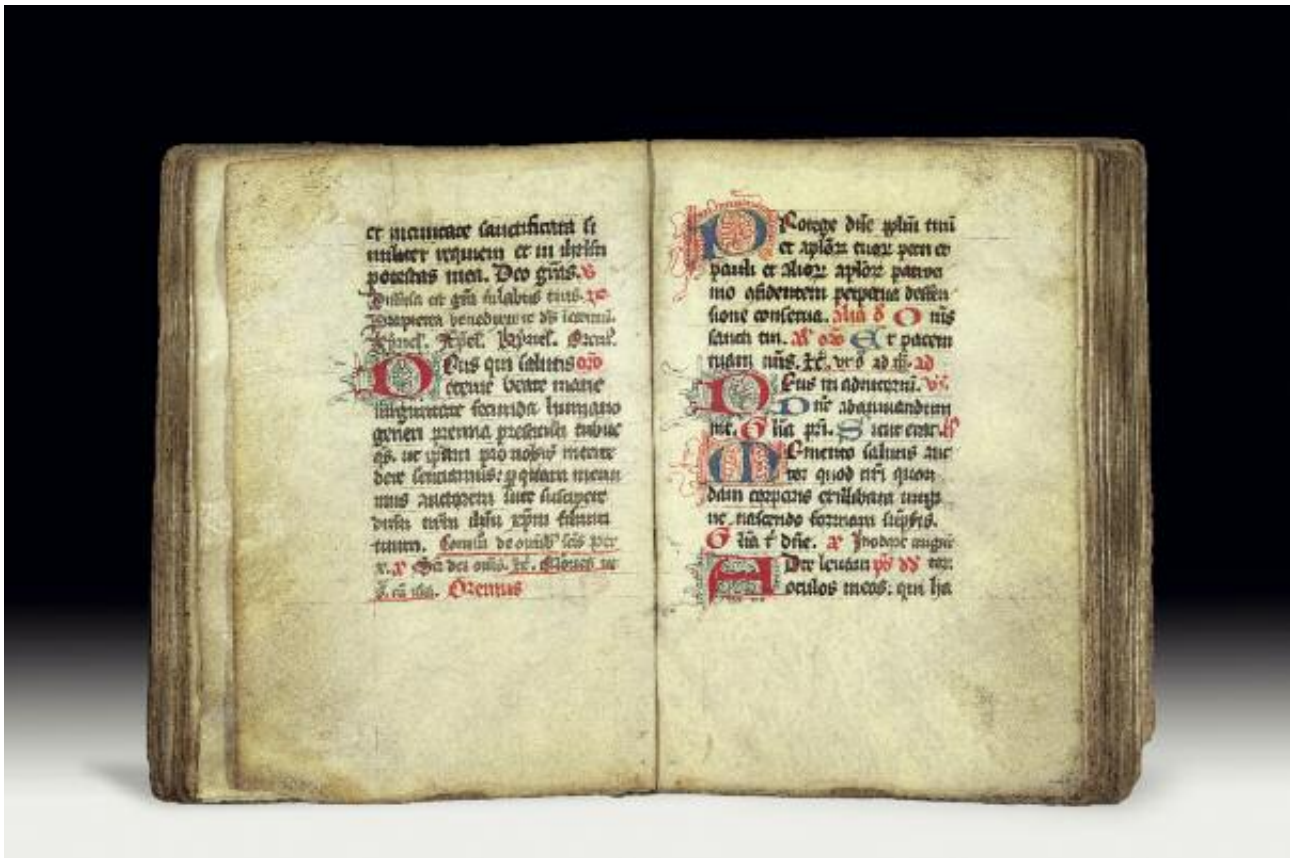 et in civitate sanctificata si
militer requiem et in ihrlm
potestas mea. Deo grãs. v̄
Diffusa est grã in labiis tuis.
Propterea benedixit te ds in eternũ.
Kyriel. Xp̃el. kyriel.
Deus qui salutis orō
eterne beate marie
virginitate fecunda humano
generi premia prestitisti tribue
qs. ut ipsam pro nobis interce
dere sentiamus: per quam meru
imus auctorem vite suscipere
dñm nr̃m ihm xp̃m filium
tuum. de omib scis per
Oremus
Protege dñe pplm tuũ
et aplõr tuor petri et
pauli et alior aplõr patroci
nio cõfidentem perpetua deffen
sione conserva. alia Ō nis
sancti tui. orō Et pacem
tuam nr̃is. ad
Deus in adiutoriũ. vs̄
Dñe ad adiuvandum
me. Glia pri. Sicut erat.
Memento salutis auc
tor quod nr̃i quon
dam corporis ex illibata virgi
ne nascendo formam sũpseris.
Glia t dñe.
Ad te levavi ps̄
oculos meos: qui ha